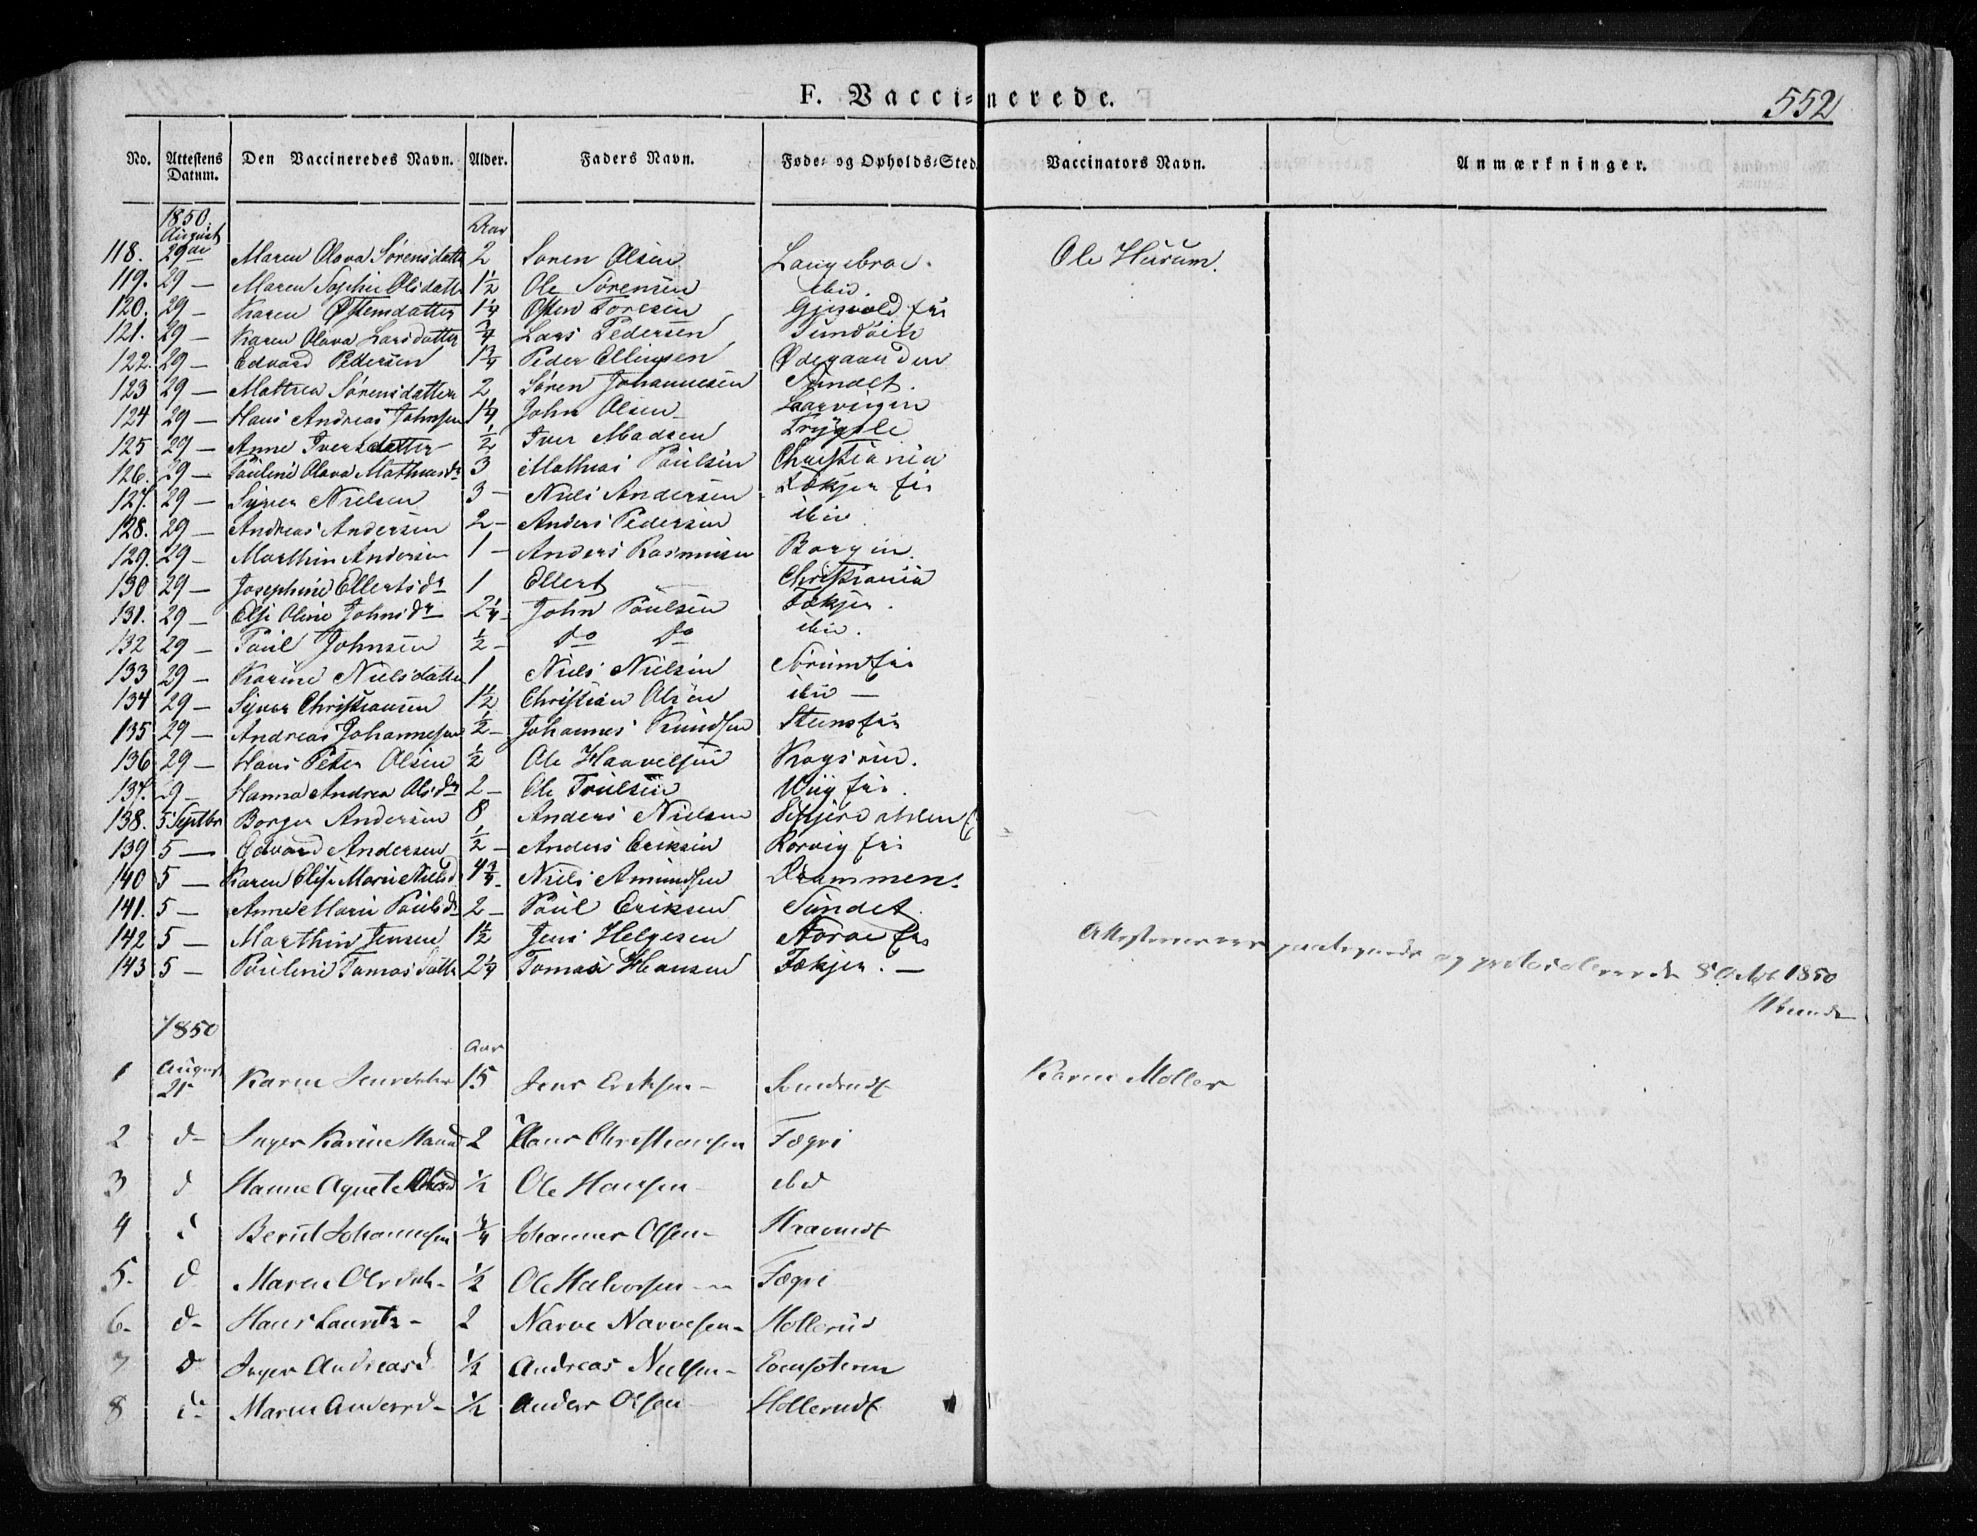 F. Vaccinerede.
552
No. Attestens Datum. Den Vaccineredes Navn. Alder. Faders Navn. Føde- og Opholds-Sted. Vaccinators Navn. Anmærkninger.
1850. Aar
August
118. 29de Maren Olava Sørensdatter 2 Søren Olsen Langebrae. Ole Husum.
119. 29 — Maren Sophie Olsdatter 1½ Ole Sørensen ibid.
120. 29 — Karen Østensdatter 1¼ Østen Toresen
121. 29 — Karen Olava Larsdatter ¾ Lars Pedersen Sundøen
122. 29 — Edvard Pedersen 1¾ Peder Ellingsen Ødegaarden
123 29 — Mathea Sørensdatter 2 Søren Johannesen Sundet.
124 29 — Hans Andreas Johnsen 1¼ John Olsen Laurvigen
125 29 — Anne Iversdatter ½ Iver Madsen Trygsle
126. 29 — Pauline Olava Mathiasdr 3 Mathias Paulsen Christiania
127. 29 — Syver Nielsen 3 — Niels Andersen
128. 29 — Andreas Andersen 2 — Anders Pedersen ibid
129. 29 — Marthin Andersen 1 — Anders Rasmusen Borgen.
130 29 — Josephine Ellertsdr 1 Ellert Christiania
131. 29 — Else Oline Johnsdr 2¼ John Paulsen Fækjer.
132 29 — Paul Johnsen ½ — do do ibid.
133 29 — Karine Nielsdatter 1 Niels Nielsen
134 29 — Syver Christiansen 1½ Christian Olsen ibid —
135 29 — Andreas Johannesen ½ — Johannes Knudsen
136 29 — Hans Peter Olsen ½ Ole Haavelsen
137. 29 — Hanna Andrea Olsdr 2 — Ole Truelsen Wiig
138. 5 Septbr Borger Andersen 8 Anders Nielsen
139 5 — Edvard Andersen ½ — Anders Eriksen Rorvig
140 5 — Karen Elise Marie Nielsd 4¾ Niels Amundsen Drammen.
141. 5 — Anne Marie Paulsdr 2 — Paul Eriksen Sundet.
142 5 — Marthin Jensen 1½ Jens Helgesen
143 5 — Pauline Tomasdatter 2¼ Tomas Hansen Fækjer. —
Attesterne ere paategnede og protocollerede 8 Octbr 1850
1850
Aar
1 August 21 Karen Jensdatter 15 Jens Eriksen — Karen Møller
2 d— Inger Karine Hansd 2 Hans Christiansen Fægri
3 d Hanne Agnete Olsd ½ Ole Hansen — ibid
4 d Bernt Johannesen ¾ Johannes Olsen —
5. d Maren Olsdatr — ½ Ole Halvorsen — Fægri
6. d— Hans Lauritz — 2 Narve Narvesen — Hollerud
7 d Inger Andreasd ½ Andreas Nielsen —
8 d— Maren Andersd — ½ Anders Olsen